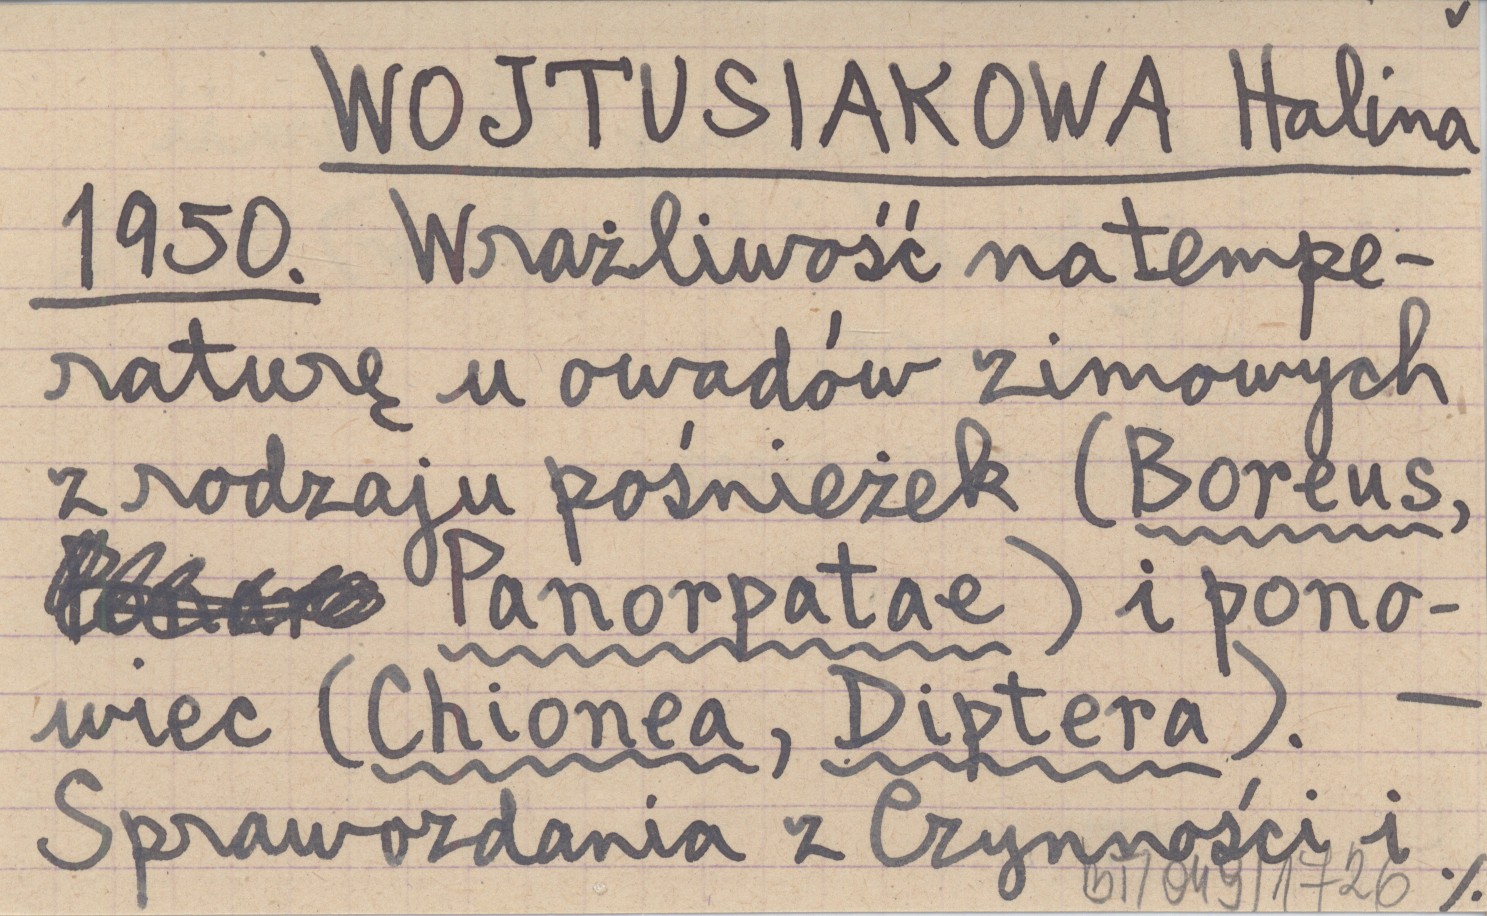 ✓
WOJTUSIAKOWA Halina
1950. Wrażliwość na tempe-
raturę u owadów zimowych
z rodzaju pośnieżek (Boreus,
Panorpatae) i pono-
wiec (Chionea, Diptera). —
Sprawozdania z Czynności i
/049/1726 ./.